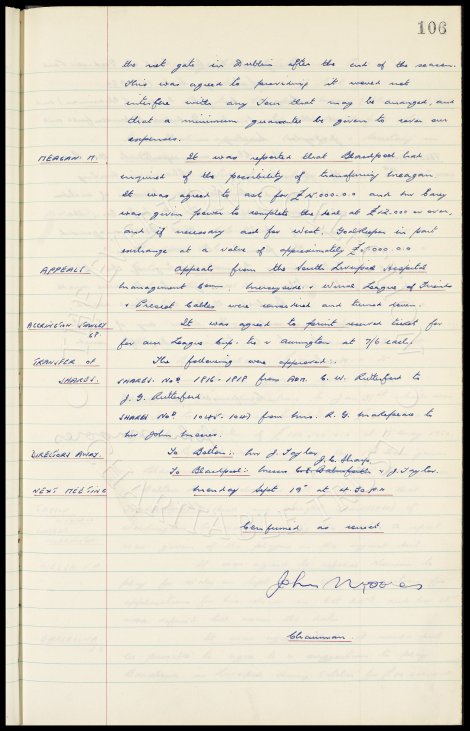 106
the net gate in Dublin after the end of the season.
This was agreed to providing it would not
interfere with any Tour that may be arranged, and
that a minimum guarantee be given to cover our
expenses.
MEAGAN. M. It was reported that Blackpool had
enquired of the possibility of transferring Meagan.
It was agreed to ask for £15.000.0.0 and Mr Carey
was given power to complete the deal at £12.000 or over,
and if necessary ask for West, Goalkeeper in part
exchange at a value of approximately 000.0.0
APPEALS Appeals from the South Liverpool Hospital
Management Comm, Merseyside & Wirral League of Friends
& Present Cables were considered and turned down.
ACCRINGTON STANLEY It was agreed to print reserved ticket for
CP. for our League Cup. tie v Accrington at 7/6 each.
TRANSFER OF The following were approved:-
SHARES. SHARES. Nos 1816-1818 from Adm. C. W. Rutherford to
J. G. Rutherford.
SHARES Nos 1045-1047 from Mrs. R. G. Makepeace to
Mr John Moores.
DIRECTORS AWAY. To Bolton:- Mr J. Taylor
J. C. Sharp.
To Blackpool:- Messrs & J. Taylor.
NEXT MEETING Monday Sept 19th at 4.30 pm
Confirmed as correct
John Moores
Chairman.